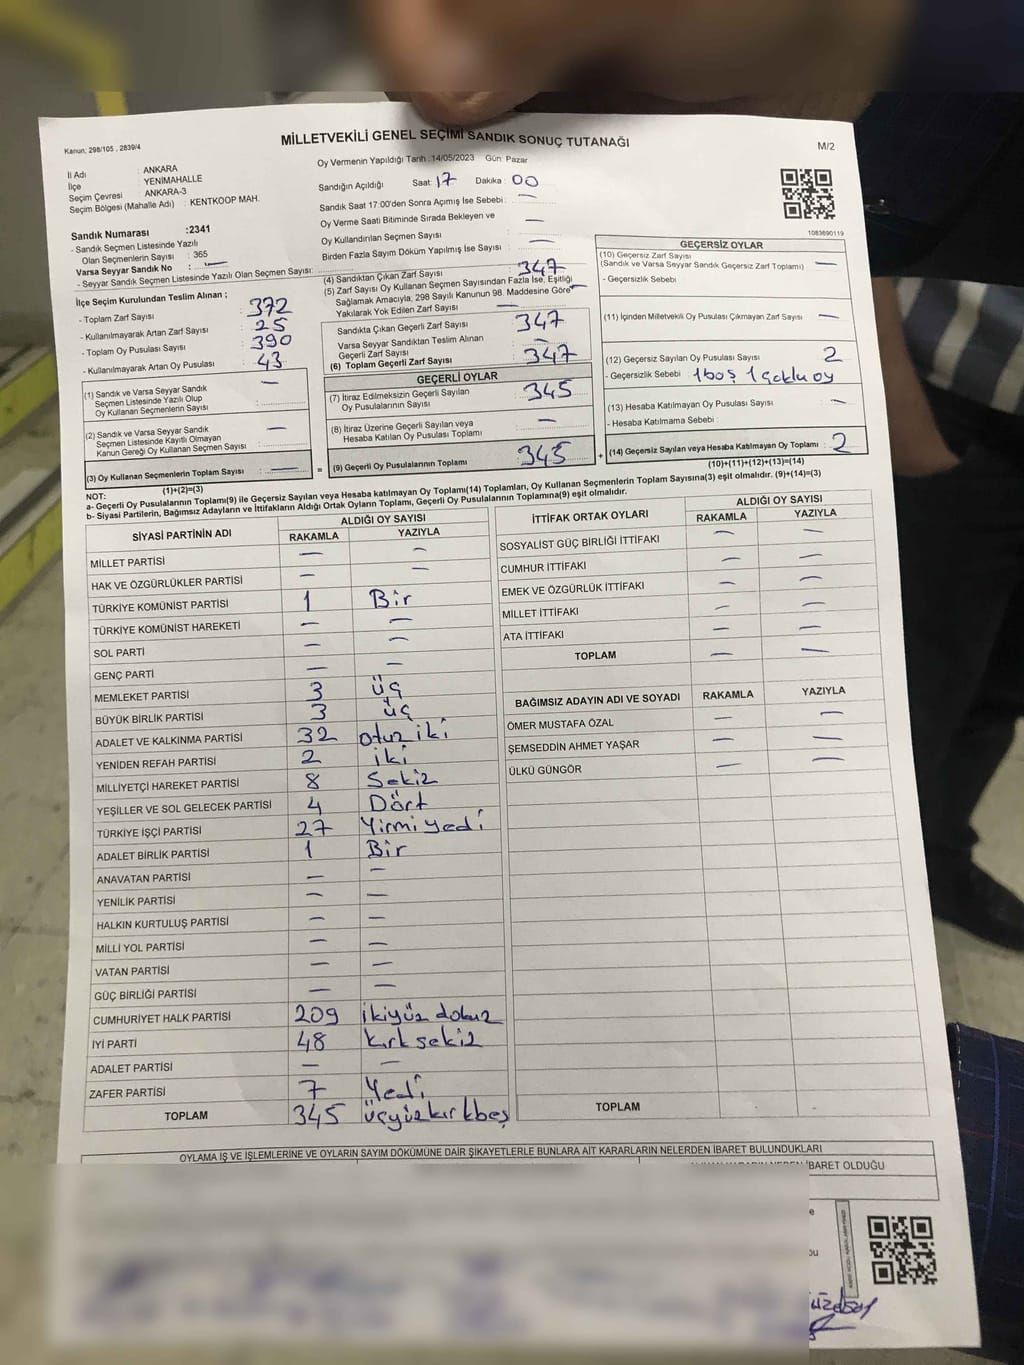 Kanun; 298/105 , 2839/4
MİLLETVEKİLİ GENEL SEÇİMİ SANDIK SONUÇ TUTANAĞI
M/2
İl Adı : ANKARA
İlçe : YENİMAHALLE
Seçim Çevresi : ANKARA-3
Seçim Bölgesi (Mahalle Adı) : KENTKOOP MAH.
Oy Vermenin Yapıldığı Tarih :14/05/2023 Gün: Pazar
Sandığın Açıldığı Saat: 17 Dakika : 00
Sandık Saat 17:00'den Sonra Açımış İse Sebebi : —
Oy Verme Saati Bitiminde Sırada Bekleyen ve
Oy Kullandırılan Seçmen Sayısı : —
Birden Fazla Sayım Döküm Yapılmış İse Sayısı : —
1083690119
Sandık Numarası :2341
- Sandık Seçmen Listesinde Yazılı
Olan Seçmenlerin Sayısı : 365
Varsa Seyyar Sandık No : —
- Seyyar Sandık Seçmen Listesinde Yazılı Olan Seçmen Sayısı:
İlçe Seçim Kurulundan Teslim Alınan ;
- Toplam Zarf Sayısı : 372
- Kullanılmayarak Artan Zarf Sayısı : 25
- Toplam Oy Pusulası Sayısı : 390
- Kullanılmayarak Artan Oy Pusulası : 43
(1) Sandık ve Varsa Seyyar Sandık
Seçmen Listesinde Yazılı Olup
Oy Kullanan Seçmenlerin Sayısı : —
(2) Sandık ve Varsa Seyyar Sandık
Seçmen Listesinde Kayıtlı Olmayan
Kanun Gereği Oy Kullanan Seçmen Sayısı : —
(3) Oy Kullanan Seçmenlerin Toplam Sayısı : —
(1)+(2)=(3)
(4) Sandıktan Çıkan Zarf Sayısı : 347
(5) Zarf Sayısı Oy Kullanan Seçmen Sayısından Fazla İse, Eşitliği
Sağlamak Amacıyla; 298 Sayılı Kanunun 98. Maddesine Göre
Yakılarak Yok Edilen Zarf Sayısı : —
Sandıkta Çıkan Geçerli Zarf Sayısı : 347
Varsa Seyyar Sandıktan Teslim Alınan
Geçerli Zarf Sayısı : —
(6) Toplam Geçerli Zarf Sayısı : 347
GEÇERLİ OYLAR
(7) İtiraz Edilmeksizin Geçerli Sayılan
Oy Pusulalarının Sayısı : 345
(8) İtiraz Üzerine Geçerli Sayılan veya
Hesaba Katılan Oy Pusulası Toplamı : —
= (9) Geçerli Oy Pusulalarının Toplamı : 345 +
GEÇERSİZ OYLAR
(10) Geçersiz Zarf Sayısı
(Sandık ve Varsa Seyyar Sandık Geçersiz Zarf Toplamı) : —
- Geçersizlik Sebebi :
(11) İçinden Milletvekili Oy Pusulası Çıkmayan Zarf Sayısı : —
(12) Geçersiz Sayılan Oy Pusulası Sayısı : 2
- Geçersizlik Sebebi : 1 boş 1 çoklu oy
(13) Hesaba Katılmayan Oy Pusulası Sayısı : —
- Hesaba Katılmama Sebebi :
(14) Geçersiz Sayılan veya Hesaba Katılmayan Oy Toplamı : 2
(10)+(11)+(12)+(13)=(14)
NOT:
a- Geçerli Oy Pusulalarının Toplamı(9) ile Geçersiz Sayılan veya Hesaba katılmayan Oy Toplamı(14) Toplamları, Oy Kullanan Seçmenlerin Toplam Sayısına(3) eşit olmalıdır. (9)+(14)=(3)
b- Siyasi Partilerin, Bağımsız Adayların ve İttifakların Aldığı Ortak Oyların Toplamı, Geçerli Oy Pusulalarının Toplamına(9) eşit olmalıdır.
SİYASİ PARTİNİN ADI ALDIĞI OY SAYISI
RAKAMLA YAZIYLA
MİLLET PARTİSİ — —
HAK VE ÖZGÜRLÜKLER PARTİSİ — —
TÜRKİYE KOMÜNİST PARTİSİ 1 Bir
TÜRKİYE KOMÜNİST HAREKETİ — —
SOL PARTİ — —
GENÇ PARTİ — —
MEMLEKET PARTİSİ 3 üç
BÜYÜK BİRLİK PARTİSİ 3 üç
ADALET VE KALKINMA PARTİSİ 32 otuz iki
YENİDEN REFAH PARTİSİ 2 iki
MİLLİYETÇİ HAREKET PARTİSİ 8 Sekiz
YEŞİLLER VE SOL GELECEK PARTİSİ 4 Dört
TÜRKİYE İŞÇİ PARTİSİ 27 Yirmi yedi
ADALET BİRLİK PARTİSİ 1 Bir
ANAVATAN PARTİSİ — —
YENİLİK PARTİSİ — —
HALKIN KURTULUŞ PARTİSİ — —
MİLLİ YOL PARTİSİ — —
VATAN PARTİSİ — —
GÜÇ BİRLİĞİ PARTİSİ — —
CUMHURİYET HALK PARTİSİ 209 ikiyüz dokuz
İYİ PARTİ 48 kırk sekiz
ADALET PARTİSİ — —
ZAFER PARTİSİ 7 Yedi
TOPLAM 345 üçyüz kırkbeş
İTTİFAK ORTAK OYLARI ALDIĞI OY SAYISI
RAKAMLA YAZIYLA
SOSYALİST GÜÇ BİRLİĞİ İTTİFAKI — —
CUMHUR İTTİFAKI — —
EMEK VE ÖZGÜRLÜK İTTİFAKI — —
MİLLET İTTİFAKI — —
ATA İTTİFAKI — —
TOPLAM — —
BAĞIMSIZ ADAYIN ADI VE SOYADI RAKAMLA YAZIYLA
ÖMER MUSTAFA ÖZAL — —
ŞEMSEDDİN AHMET YAŞAR — —
ÜLKÜ GÜNGÖR — —
TOPLAM
OYLAMA İŞ VE İŞLEMLERİNE VE OYLARIN SAYIM DÖKÜMÜNE DAİR ŞİKAYETLERLE BUNLARA AİT KARARLARIN NELERDEN İBARET BULUNDUKLARI
İBARET OLDUĞU